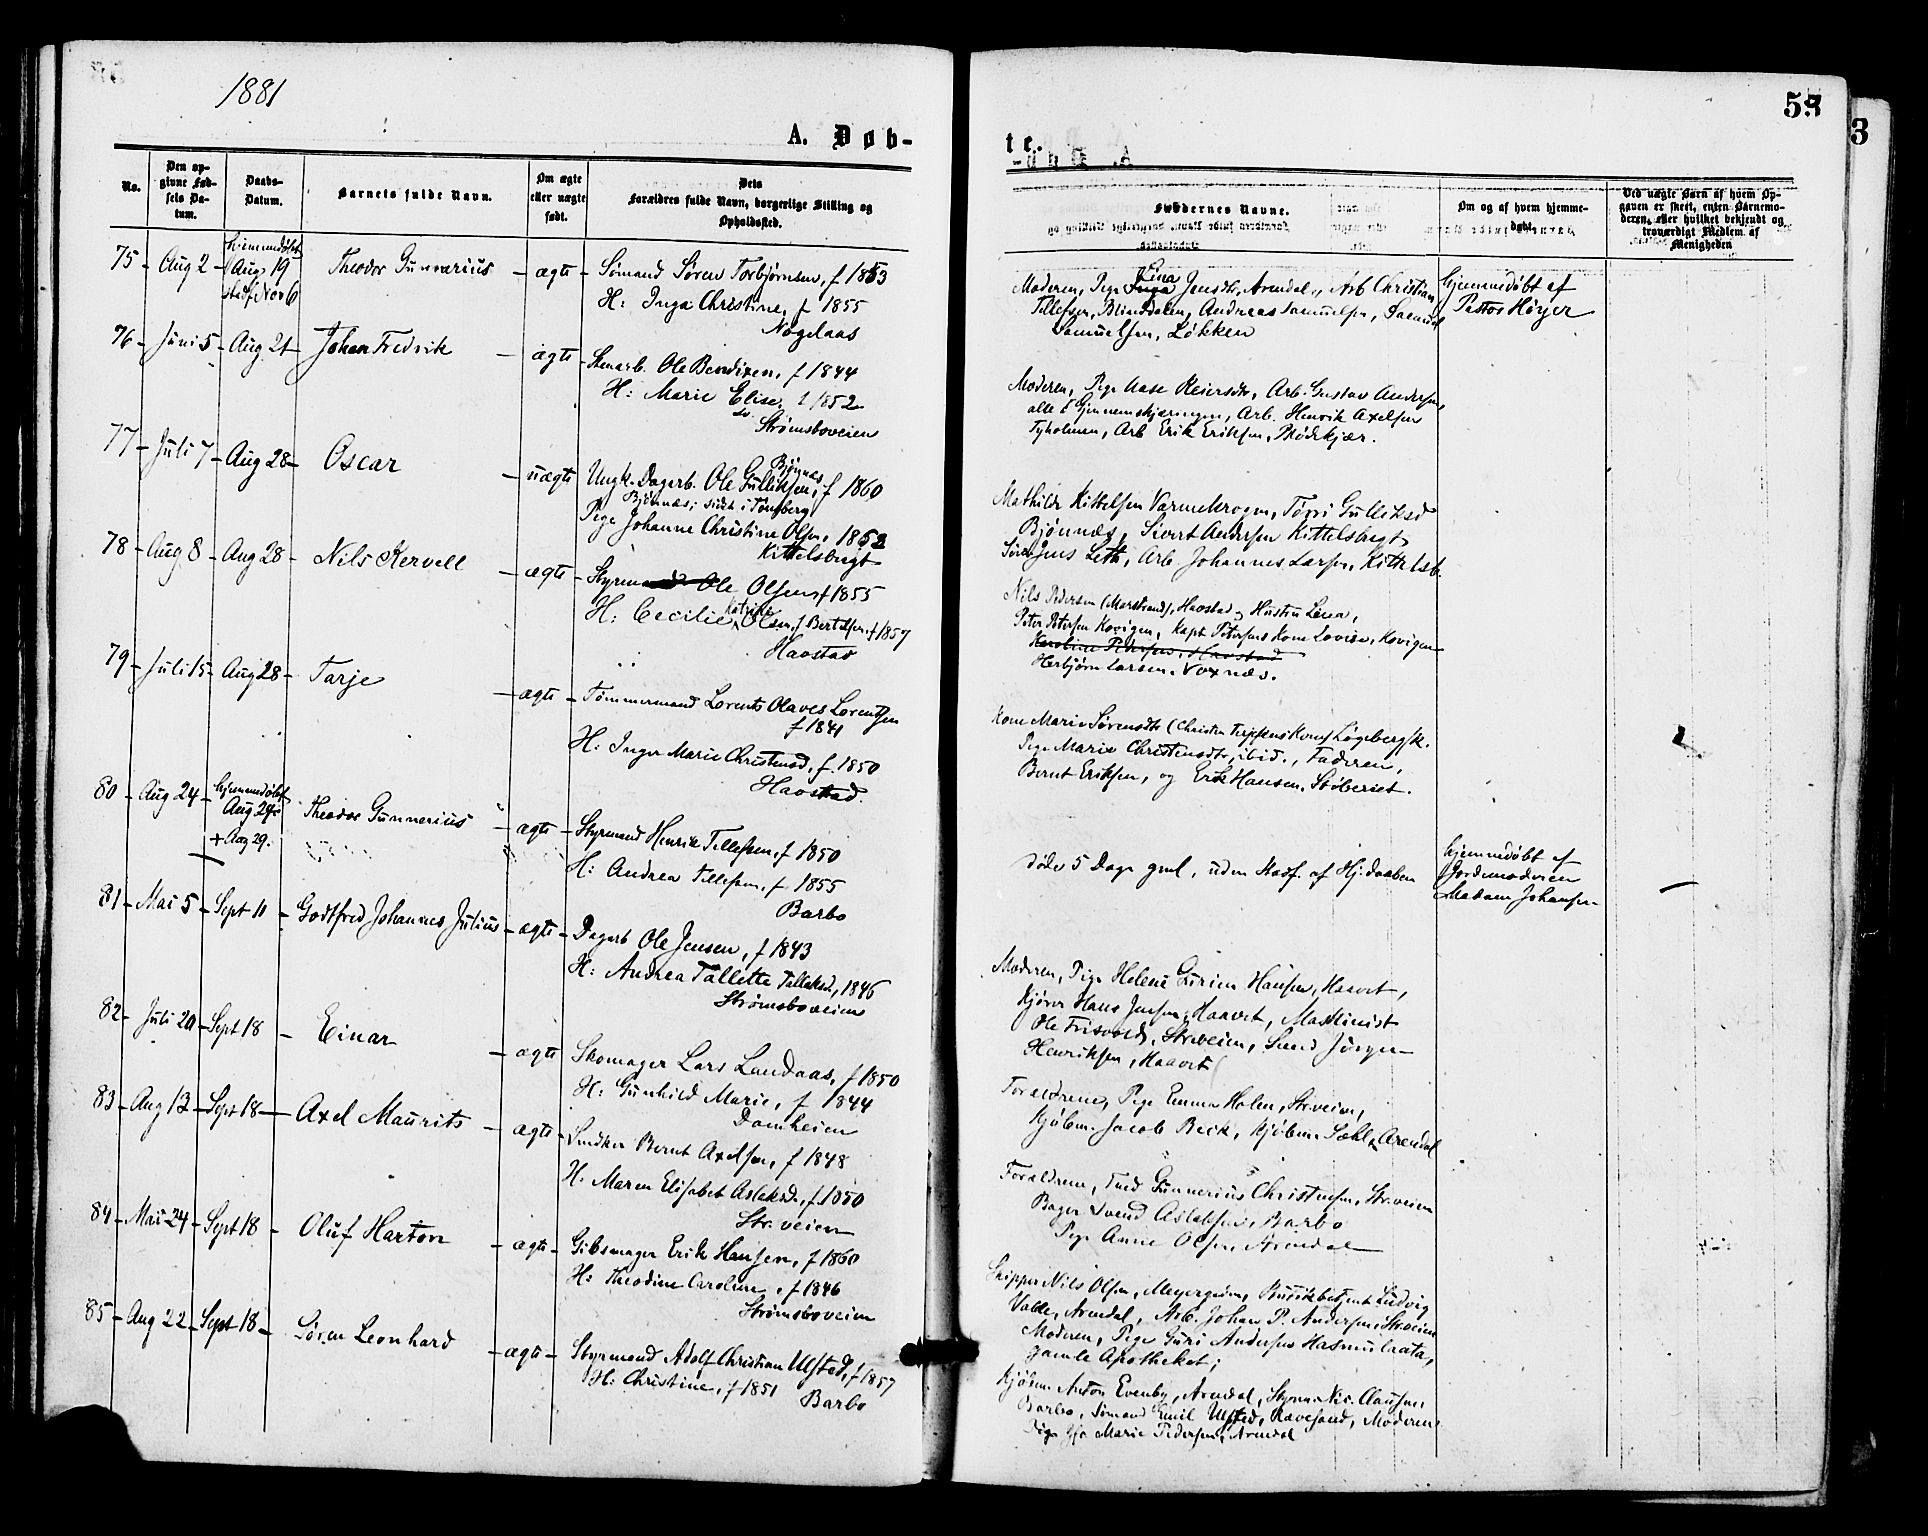 1881
53
3
A. Døb-
te.
No.
Den op-
givne Fød-
sels Da-
tum.
Daabs-
Datum.
Barnets fulde Navn.
Om ægte
eller uægte
født.
Dets
Forældres fulde Navn, borgerlige Stilling og
Opholdssted.
Faddernes Navne.
Om og af hvem hjemme-
døbt.
Ved uægte Barn af hvem Op-
gaven er skeet, enten Barnemo-
deren, eller hvilket bekjendt og
troværdigt Medlem af
Menigheden
75 - Aug 2 - hjemmedøbt Aug 19 stadf Nov 6
Theodor Gunnarius - ægte -
Sømand Søren Torbjørnsen, f 1853
H: Inga Christine, f 1855
Moderen, Pige Lina Jensdtr, Arendal, Arb Christian
Tellefsen, Blinddalen, Andreas Samuelsen, Samuel
Samuelsen, Løkken
hjemmedøbt af
Pastor Høyer
76 - Juni 5 - Aug 21 - Johan Fredrik - ægte -
Stenarb. Ole Bendixen, f 1844
H: Marie Elise, f 1852
Strømsboveien
Moderen, Pige Aase Reiersdtr, Arb. Gustav Andersen,
alle i Gjennemskjæringen, Arb. Henrik Axelsen
Tyholmen, Arb Erik Eriksen, Rødekjær.
77 - Juli 7 - Aug 28 - Oscar - uægte
Ungk. Dagarb. Ole Gulliksen, f 1860
Bjønnæs, sidst i Tønsberg
Pige Johanne Christine Olsen, 1852
Kittelsbugt
Mathilde Kittelsen Varmekrogen, Tørri Gulliksd
Bjønnæs, Sivert Andersen Kittelsbugt
Jens Leth, Arb Johannes Larsen, Kittelsb.
78 - Aug 8 - Aug 28 - Nils Kervell - ægte -
Styrmand Ole Olsen f 1855
H: Cecilie Katrine Olsen, f Bertelsen, f 1857
Havstad
Nils Pedersen (Marstrand), Havstad og Hustru Lena,
Peter Petersen Kovigen, Kapt Petersens Kone Lovise, Kovigen
Karoline Pedersen, Havstad
Herbjørn Larsen, Voxnæs.
79 - Juli 15 - Aug 28 - Tarje - ægte -
Tømmermand Lorents Olaves Lorentsen
f 1841
H: Inger Marie Christensd, f. 1850
Havstad.
Kone Marie Sørensdtr (Christen Terjesens Kone) Løgebergk.
Pige Marie Christensdtr, ibid., Faderen,
Bernt Eriksen, og Erik Hansen, Støberiet.
80 - Aug 24 - hjemmedøbt Aug 24 + Aug 29.
Theodor Gunnerius - ægte -
Styrmand Henrik Tellefsen, f 1850
H: Andrea Tellefsen, f 1855
Barbo
døde 5 Dage gml, uden Stadf. af Hj.daaben
hjemmedøbt af
Jordemoderen
Madam Johansen
81 - Mai 5 - Sept 11 - Godtfred Johannes Julius - ægte -
Dagarb Ole Jensen, f 1843
H: Andrea Tallette Tallaksd, 1846
Strømsboveien
Moderen, Pige Helene Hansen, Haavet,
Kjører Hans Jensen, Haavet, Maskinist
Ole Frisvold, Strveien, Svend Jørgen
Henriksen, Haavet
82 - Juli 20 - Sept 18 - Einar - ægte
Skomager Lars Landaas, f 1850
H: Gunhild Marie, f 1844
Forældrene, Pige Emma Holen, Strveien,
Kjøbm. Jacob Beck, Kjøbm. Arendal
83 - Aug 13 - Sept 18 - Axel Maurits - ægte -
Snedker Bernt Axelsen, f 1848
H. Maren Elisabet Aslaksd, f. 1850
Str. veien
Forældrene, Gunnerius Christensen, Str. veien
Bager Svend Aslaksen, Barbo
Pige Anne Olsen, Arendal
84 - Mai 24 - Sept 18 - Oluf Harton - ægte -
Gibsmager Erik Hansen, f 1860
H: Theodine Caroline, f 1846
Strømsboveien
Skipper Nils Olsen, Meyergården, Butikbetjent Ludvig
Valle, Arendal, Arb. Johan P. Andersen, Strveien
Moderen, Pige Guri Andersen
gamle Apotheket;
85 - Aug 22 - Sept 18 - Søren Leonhard - ægte -
Styrmand Adolf Christian Ulsted, f 1857
H: Christine, f 1851
Barbo
Kjøbm Anton Evenby, Arendal, Styrm. Nic. Clausen,
Barbo, Sømand Emil Ulsted, Ravesand, Moderen
Marie Pedersen, Arendal